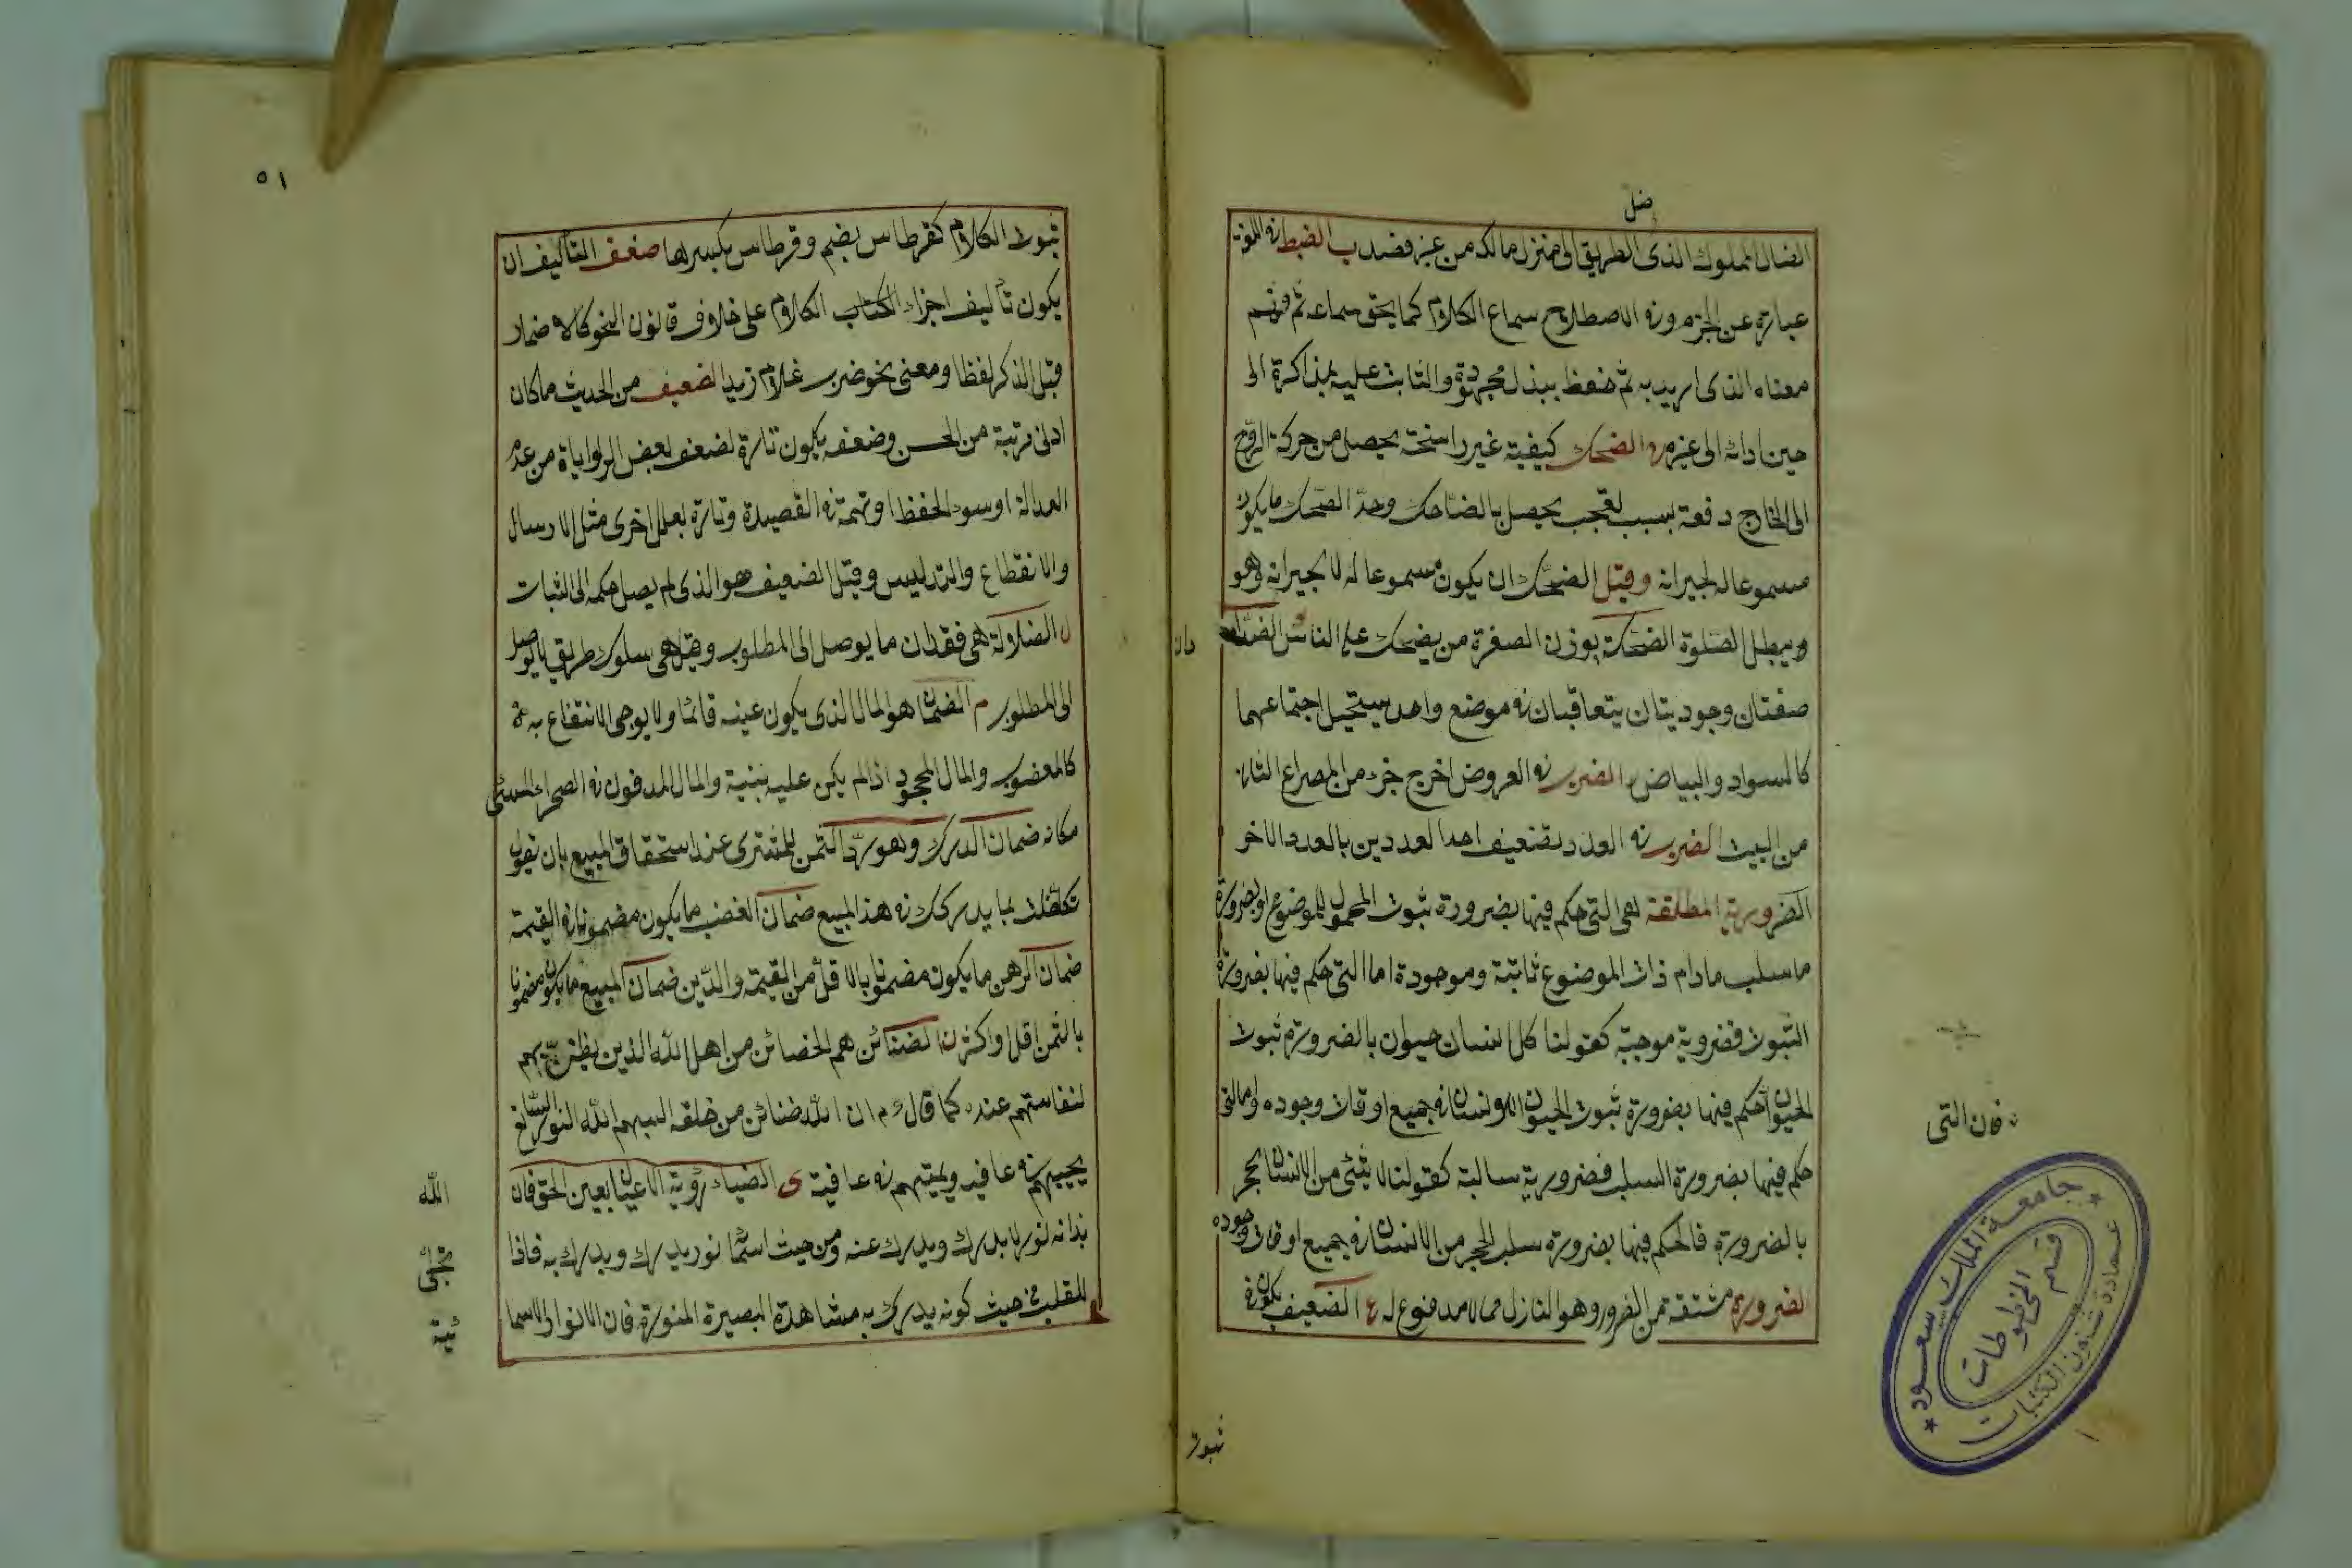 ضل
الضال المملوك الذى الطريق الى منزل مالكه من غير قصد ب الضبط فى اللغة
عبارة عن الجزم وفى الاصطلاح سماع الكلام كما يحق سماعه ثم فهم
معناه الذى اريد به ثم حفظ ببذل مجهوده والثابت عليه بمذاكرة الى
حين ادائه الى غيره ح الضحك كيفية غير راسخة يحصل من حركة الروح
الى الخارج دفعة بسبب تعجب يحصل بالضاحك وحد الضحك ما يكون
مسموعا له لجيرانه وقيل الضحك ان يكون مسموعا له لا بجيرانه وهو
ويبطل الصلوة الضحكة بوزن الصفرة من يضحك على الناس الضدان
صفتان وجوديتان يتعاقبان فى موضع واحد يستحيل اجتماعهما
كالسواد والبياض ر الضرب فى العروض اخرج جزء من المصراع الثانى
من البيت الضرب فى العدد تضعيف احد العددين بالعدد الاخر
الضرورية المطلقة هى التى حكم فيها بضرورة ثبوت المحمول للموضوع او بضرورة
ما سلب مادام ذات الموضوع ثابتة وموجودة اما التى حكم فيها بضرورة
الثبوت فضروية موجبة كقولنا كل انسان حيوان بالضرورة ثبوت
الحيوان الحكم فيها بضرورة ثبوت الحيوان الاونسان فى جميع اوقات وجوده واما التى
فان التى
حكم فيها بضرورة السلب فضرورية سالبة كقولنا لا شئ من الانسان بحجر
بالضرورة فالحكم فيها بضرورة سلب الحجر من الانسان فى جميع اوقات وجوده
لضرورة مشتقة من الضرر وهو النازل مما لا مدفوع له ع الضعيف يكون فى
ثبوت
جامعة الملك سعود
قسم المخطوطات
عمادة شئون المكتبات
٥١
ثبوت الكلام كقرطاس بضم وقرطاس بكسرها ضعف التأليف ان
يكون تأليف اجزاء الكتاب الكلام على خلاف قانون النحو كالاضمار
قبل الذكر لفظا ومعنى نحو ضرب غلام زيدا لضعيف من الحديث ما كان
ادنى مرتبة من الحسن وضعفه يكون تارة لضعف بعض الرواياة من عدم
العدالة او سوء الحفظ او تهمة فى القصيدة وتارة بعلل اخرى مثل الارسال
والانقطاع والتدليس وقيل الضعيف هو الذى لم يصل حكمه الى الثبات
ل الضلالة هى فقدان ما يوصل الى المطلوب وقيل هى سلوك طريق لا يوصل
الى المطلوب م الضمان هو المال الذى يكون عينه قائما ولا يوجى الانتفاع به
كالمغضوب والمال المجحود اذا لم يكن عليه بنية والمال المدفون فى الصحراء المنسى
مكانه ضمان الدرك وهو رد الثمن للمشترى عند استحقاق المبيع بان تقول
تكفلت بما يدركك فى هذ المبيع ضمان الغضب ما يكون مضمونا فى القيمة
ضمان الرهن ما يكون مضمونا بالاقل من القيمة والدين ضمان المبيع ما يكون مضمونا
بالثمن اقل واكثر ن الضنائن هم الخصائن من اهل الله الذين يظن بهم
لنفاستهم عنده كما قال ع م ان لله ضنائن من خلقه البسهم الله النور الساطع
يحييهم فى عافية ويميتهم فى عافية ى الضياء رؤية الاعيان بعين الحق فان
الله
بذاته نور لا يدرك ويدرك عنه ومن حيث اسمائه نور يدرك ويدرك به فاذا
تجلى
للقلب من حيث كونه يدرك به مشاهدة البصيرة المنورة فان الانوار الاسما
ئية